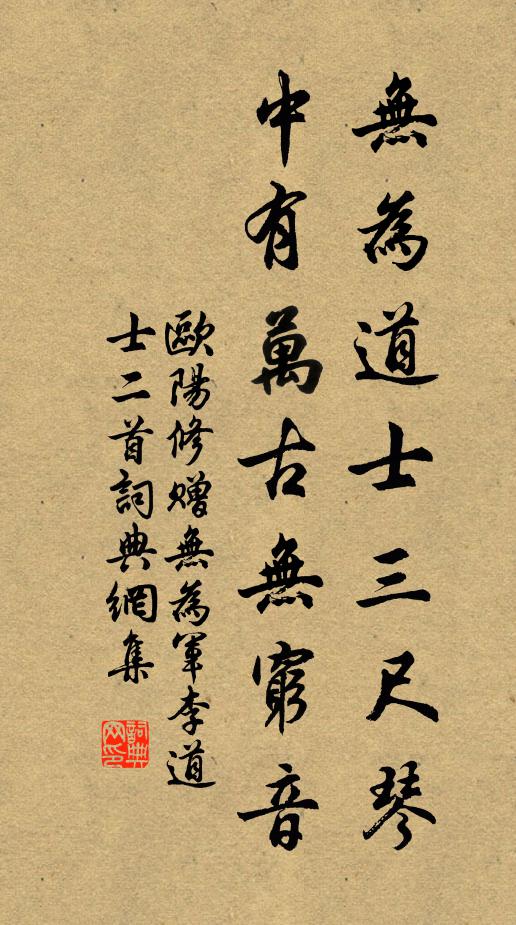 無為道士三尺琴
中有萬古無窮音
歐陽修贈無為軍李道
士二首詞典網集
詞典
网印